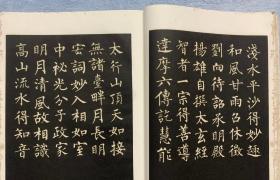 淺水平沙得妙趣
和風甘雨召休徵
劉向待詔承明殿
揚雄自撰太玄經
智者一宗得善導
達摩六傳託慧能
太行山頂天如接
無諸臺畔月長明
宏詞妙入相如室
中秘光分子政家
明月清風故相識
高山流水得知音